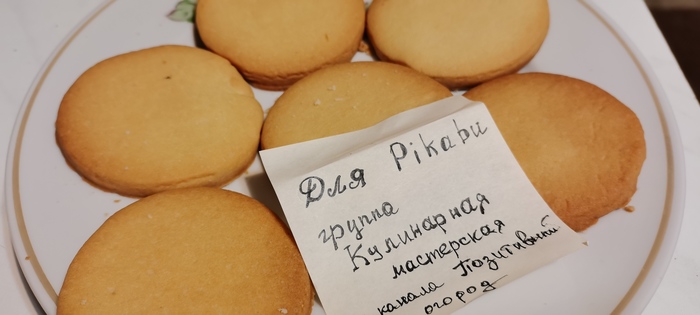 Для Pikabu
группа
Кулинарная
мастерская
канала Позитивный
огород